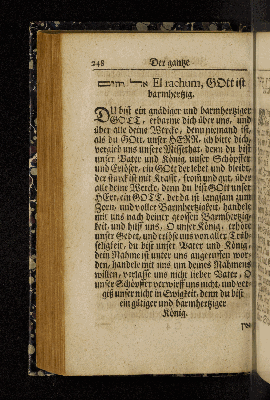 248 Der gantze
אל רחום El rachum, GOtt ist
barmhertzig.
DU bist ein gnädiger und barmhertziger
GOTT, erbarme dich über uns, und
über alle deine Wercke, denn niemand ist,
als du GOtt, unser HERR, ich bitte dich,
vergieb uns unsre Missethat, denn du bist
unser Vater und König, unser Schöpffer
und Erlöser, ein GOtt der lebet und bleibt,
der starck ist mit Krafft, from und gut, über
alle deine Wercke, denn du bist GOtt unser
HErr, ein GOTT, der da ist langsam zum
Zorn, und voller Barmhertzigkeit, handele
mit uns nach deiner grossen Barmhertzig-
keit, und hilff uns, O unser König, erhöre
unser Gebet, und erlöse uns von aller Trüb-
seligkeit, du bist unser Vater und König,
dein Nahme ist unter uns angeruffen wor-
den, handele mit uns um deines Nahmens
willen, verlasse uns nicht lieber Vater, O
unser Schöpffer verwirff uns nicht, und ver-
giß unser nicht in Ewigkeit, denn du bist
ein gütiger und barmhertziger
König.